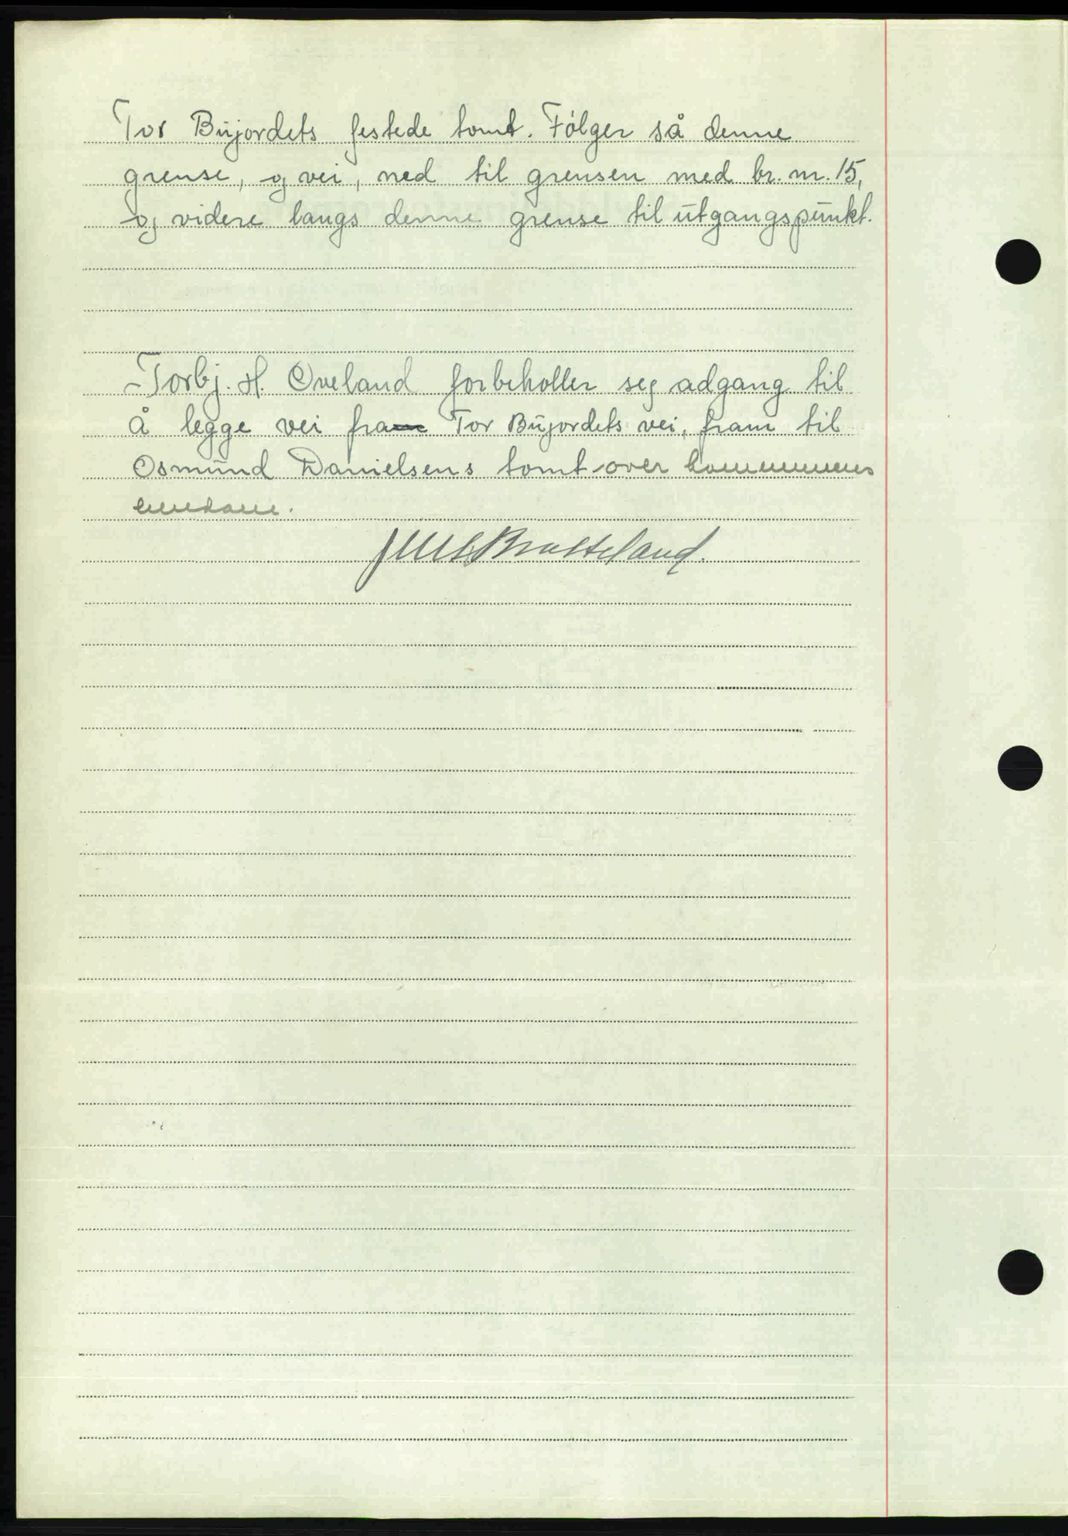 Tor Bujordets festede tomt. Følger så denne
grense, og vei, ned til grensen med br. nr. 15,
og videre langs denne grense til utgangspunkt.
Torbj. H. Oveland forbeholler seg adgang til
å legge vei fra Tor Bujordets vei, fram til
Osmund Danielsens tomt over kommunens
eiendom.